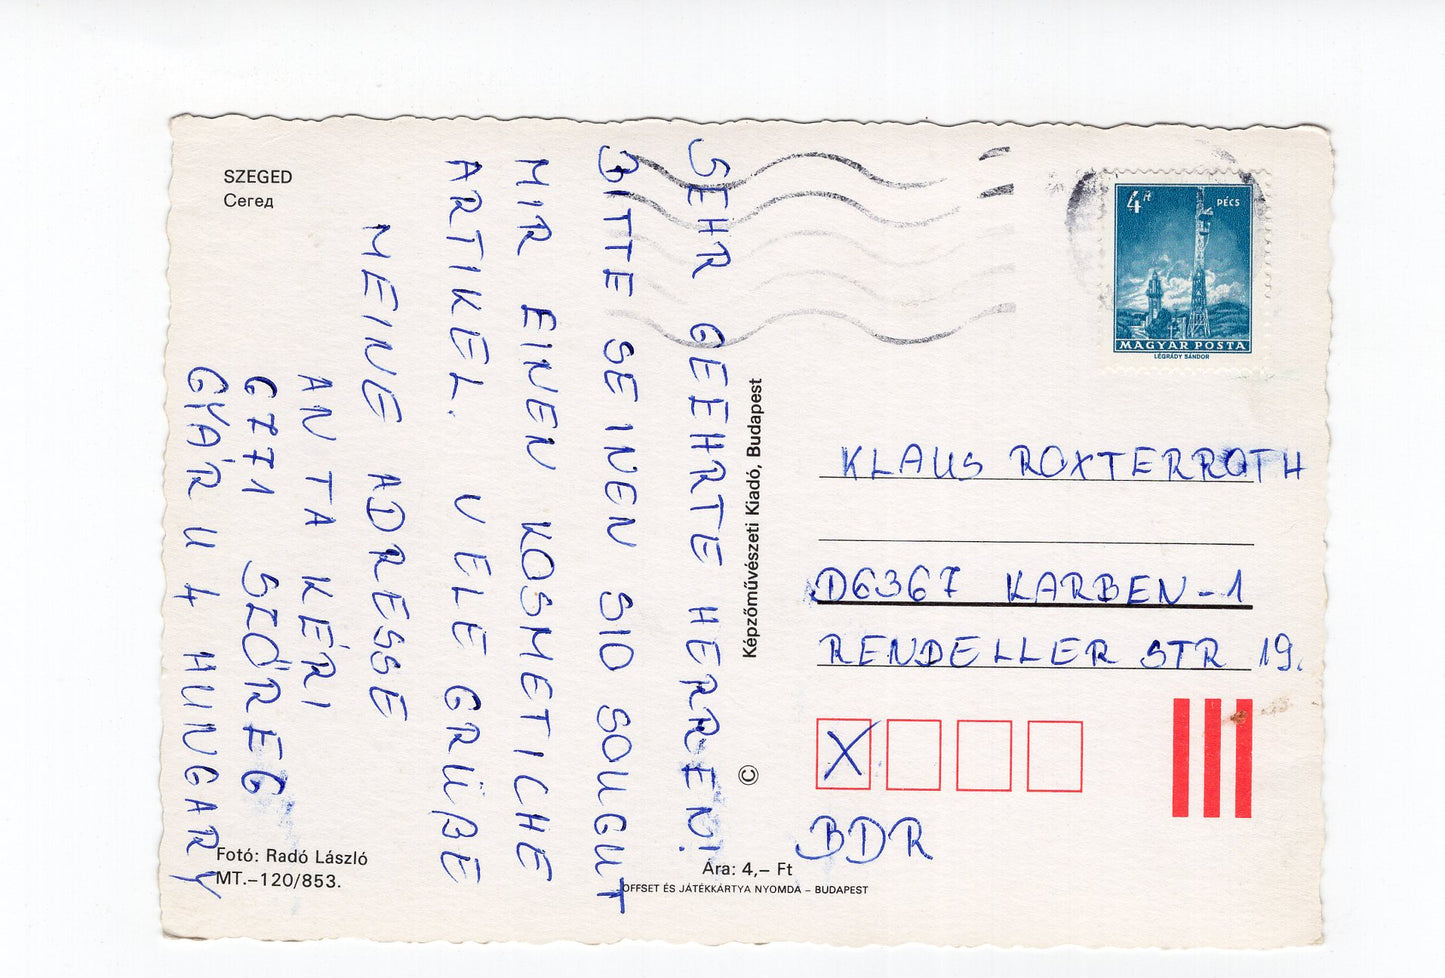 SZEGED
Сегед
SEHR GEEHRTE HERREN!
BITTE SEINEN SID SOUGUT
MIR EINEN KOSMETICHE
ARTIKEL. VELE GRÜßE
MEINE ADRESSE
ANTA KÉRI
6771 SZŐREG
GYÁR U 4 HUNGARY
Fotó: Radó László
MT.–120/853.
Képzőművészeti Kiadó, Budapest
©
Ára: 4,– Ft
OFFSET ÉS JÁTÉKKÁRTYA NYOMDA – BUDAPEST
4 Ft
PÉCS
MAGYAR POSTA
LÉGRÁDY SÁNDOR
KLAUS ROXTERROTH
D6367 KARBEN-1
RENDELLER STR 19.
X
BDR